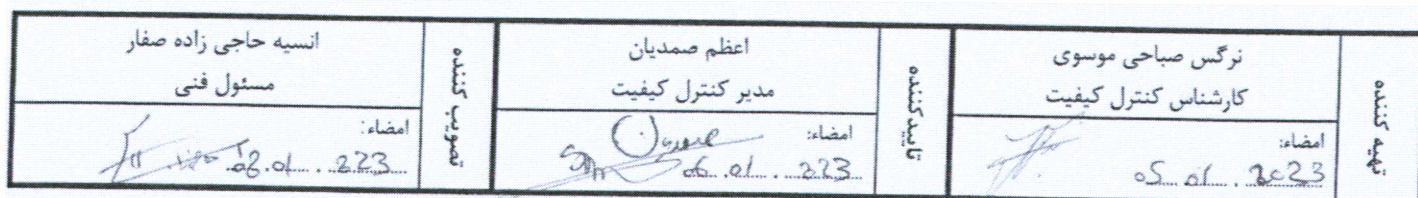 تهیه کننده
نرگس صباحی موسوی
کارشناس کنترل کیفیت
امضاء:
05.01.2023
تایید کننده
اعظم صمدیان
مدیر کنترل کیفیت
امضاء:
06.01.223
تصویب کننده
انسیه حاجی زاده صفار
مسئول فنی
امضاء:
.01.223